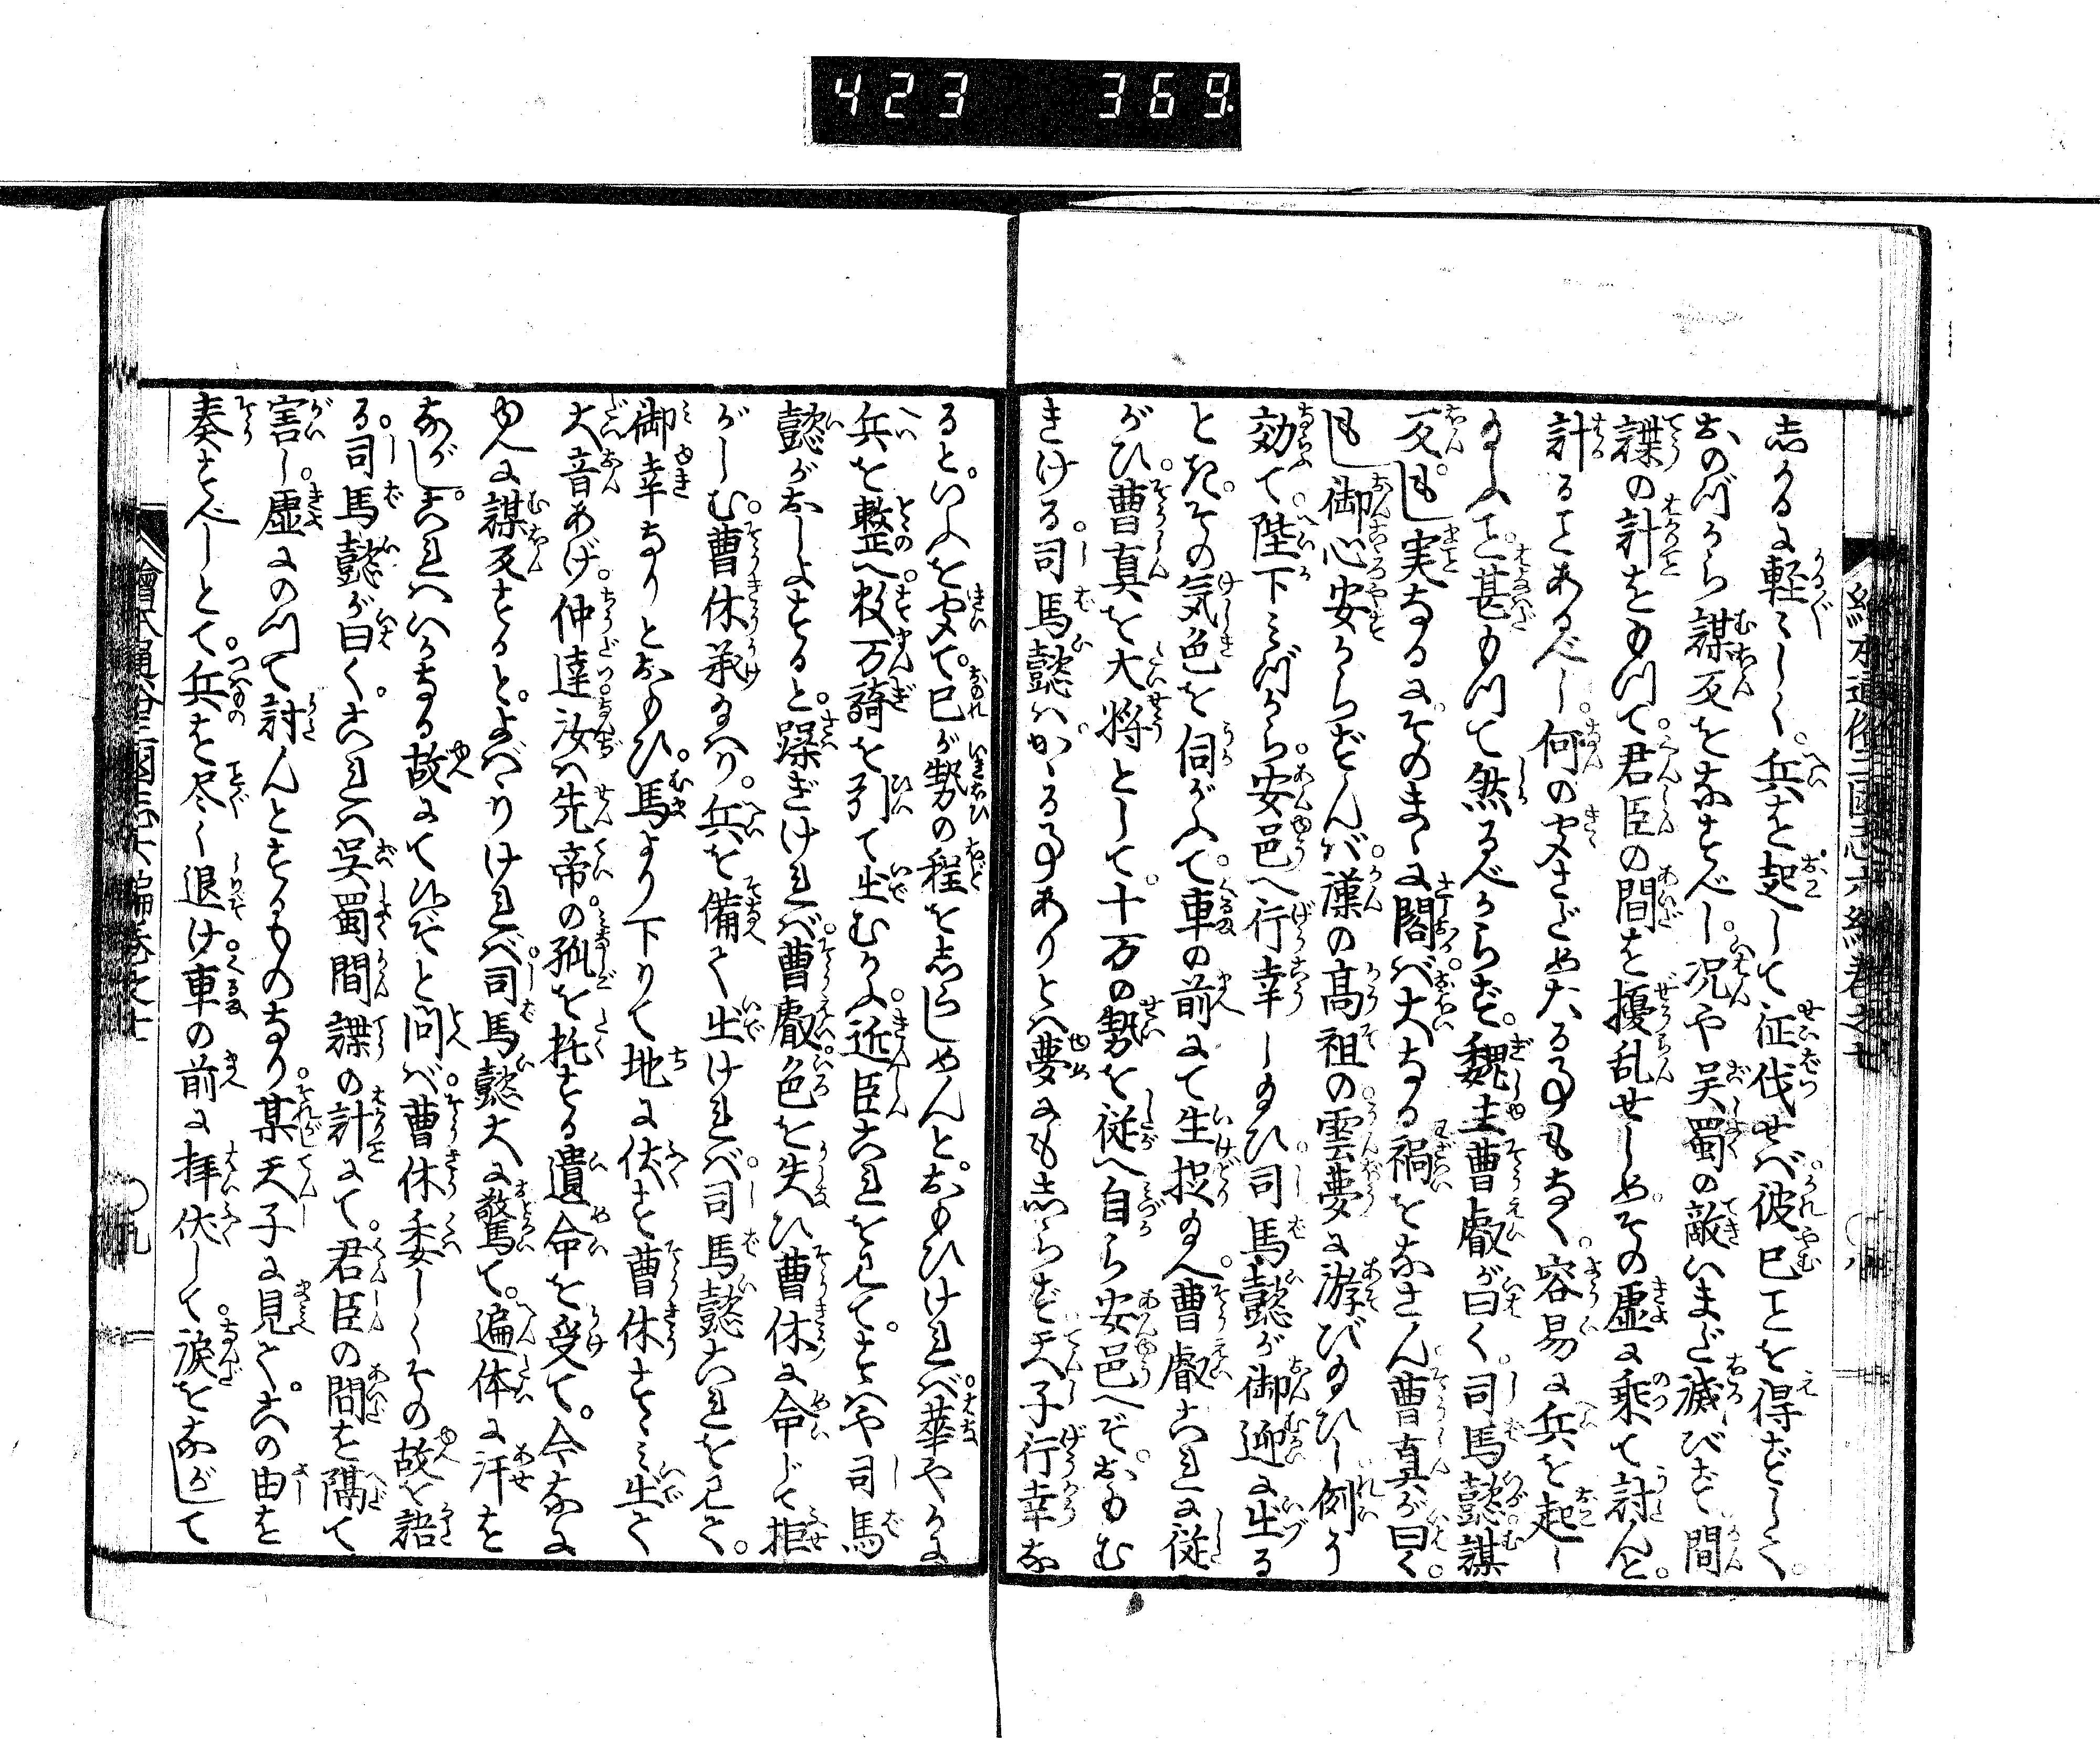 423 369
繪本通俗三国志六編巻之七 八
志かるに軽〳〵しく。兵を起して征伐せバ。彼已ことを得ずして。
おのづから謀反をなすべし。况や呉蜀の敵いまだ滅びず。間
諜の計をもつて。君臣の間を擾乱せしめ。その虚に乗て討んと。
計ることあるべし。何の定さだめたる事もなく。容易に兵を起し
給ふこと。甚もつて然るべからず。魏主曹叡が曰く。司馬懿謀
反。もし実なるに。そのまゝに閣バ。大なる禍をなさん。曹真が曰く。
もし御心安からずんバ。漢の高祖の雲夢に游び給ひし例に
効て。陛下ミづから。安邑へ行幸し給ひ。司馬懿が御迎に出る
とき。その気色を伺がふて。車の前にて生捉給へ。曹叡これに従
がひ。曹真を大将として。十万の勢を従へ自ら安邑へぞ。おもむ
きける。司馬懿ハかゝる事ありとハ夢にも志らず。天子行幸な
ると。いふを聞て。已が勢の程を志らしめんと。おもひけれバ。華やかに
兵を整へ。数万騎を引て出むかふ。近臣これを見て。すハや司馬
懿がおしよすると。躁ぎけれバ。曹叡。色を失ひ曹休に命じて拒
がしむ。曹休承給ハり。兵を備て出けれバ。司馬懿これを見て。
御幸なりとおもひ。馬より下りて地に伏す曹休すゝミ出て
大音あげ。仲達汝ハ先帝の孤を托する遺命を受て。今なに
ゆへに謀反すると。よバゝりけれバ。司馬懿大に驚て。遍体に汗を
ながし。これハいかなる故にて候ぞと問バ。曹休委しくその故を語
る。司馬懿が曰く。これハ呉蜀間諜の計にて。君臣の間を隔て
害し。虚にのつて討んとするものなり。某天子に見て。この由を
奏すべしとて。兵を尽く退け。車の前に拝伏して。涙をながして
繪本通俗三国志六編巻之七 九